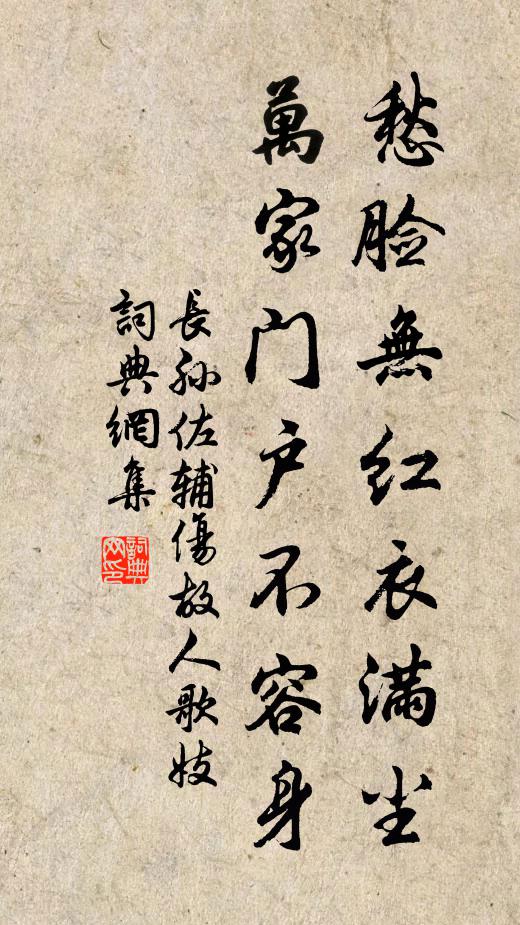 愁脸無红衣满尘
萬家門户不容身
長孙佐辅傷故人歌妓
詞典網集
詞典网印